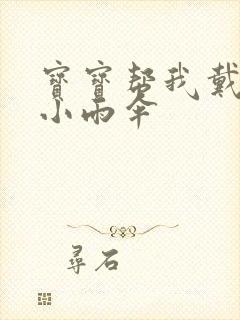 寶寶幫我戴
小雨伞
尋石